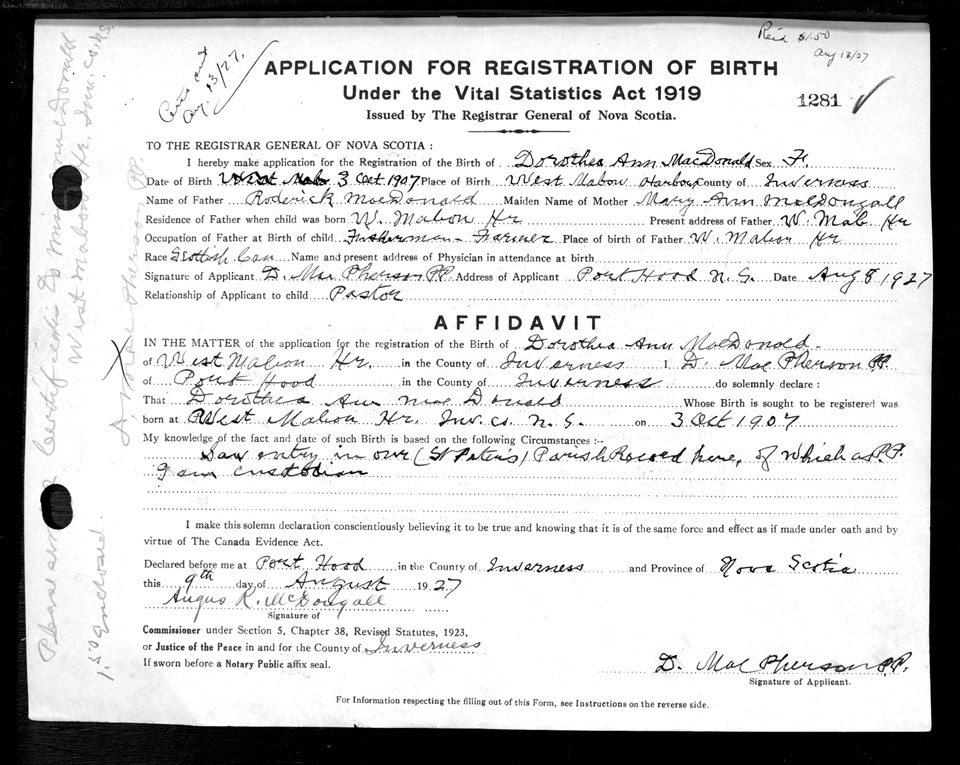 Rec'd $1.50
Aug 13/27
Cert. sent
Aug. 13/27.
APPLICATION FOR REGISTRATION OF BIRTH
Under the Vital Statistics Act 1919
1281 ✓
Issued by The Registrar General of Nova Scotia.
TO THE REGISTRAR GENERAL OF NOVA SCOTIA :
I hereby make application for the Registration of the Birth of Dorothea Ann MacDonald Sex F.
Date of Birth 3 Oct 1907 Place of Birth West Mabou Harbour County of Inverness
Name of Father Roderick MacDonald Maiden Name of Mother Mary Ann MacDougall
Residence of Father when child was born W. Mabou Hr Present address of Father W. Mab. Hr
Occupation of Father at Birth of child Fisherman - Farmer Place of birth of Father W. Mabou Hr
Race Scottish Can Name and present address of Physician in attendance at birth
Signature of Applicant D. MacPherson PP. Address of Applicant Port Hood N.S. Date Aug 8 1927
Relationship of Applicant to child Pastor
AFFIDAVIT
IN THE MATTER of the application for the registration of the Birth of Dorothea Ann MacDonald
of West Mabou Hr. in the County of Inverness I D. MacPherson PP.
of Port Hood in the County of Inverness do solemnly declare :
That Dorothea Ann MacDonald Whose Birth is sought to be registered was
born at West Mabou Hr. Inv. Co. N.S. on 3 Oct 1907
My knowledge of the fact and date of such Birth is based on the following Circumstances :-
Saw entry in our (St Peter's) Parish Record here, of which as P.P.
I am custodian
I make this solemn declaration conscientiously believing it to be true and knowing that it is of the same force and effect as if made under oath and by
virtue of The Canada Evidence Act.
Declared before me at Port Hood in the County of Inverness and Province of Nova Scotia
this 9th day of August 1927
Angus R. McDougall
Signature of
Commissioner under Section 5, Chapter 38, Revised Statutes, 1923,
or Justice of the Peace in and for the County of Inverness
If sworn before a Notary Public affix seal.
D. MacPherson P.P.
Signature of Applicant.
For Information respecting the filling out of this Form, see Instructions on the reverse side.
Please send Certificate to Donald
West Mabou Hr. Inv. Co. N.S.
MacPherson PP.
1.50 Enclosed.